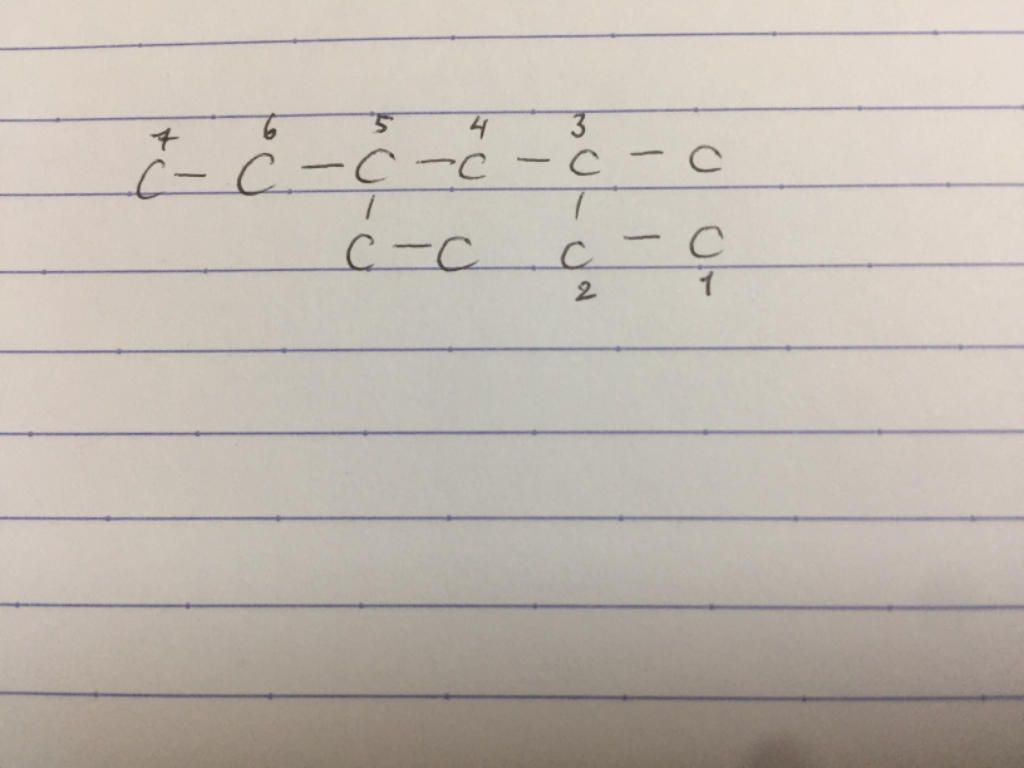 7 6 5 4 3
C - C - C - C - C - C
C - C C - C
2 1